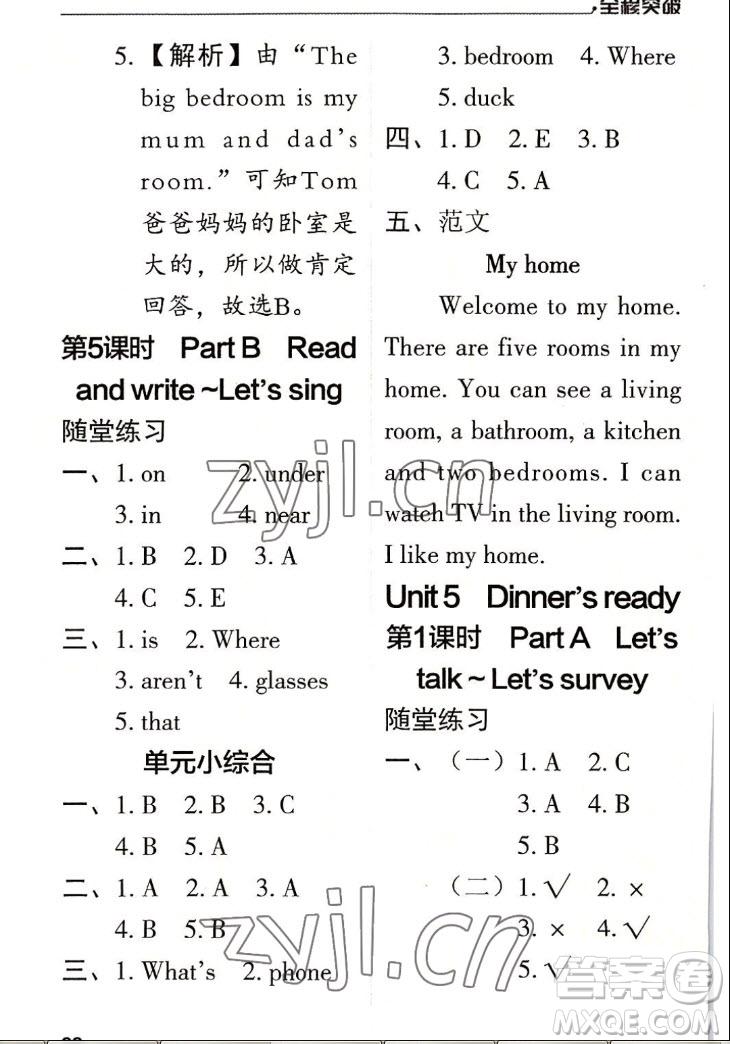 全程突破
5.【解析】由“The
big bedroom is my
mum and dad's
room.”可知Tom
爸爸妈妈的卧室是
大的，所以做肯定
回答，故选B。
第5课时 Part B Read
and write ~Let's sing
随堂练习
一、1. on 2. under
3. in 4. near
二、1. B 2. D 3. A
4. C 5. E
三、1. is 2. Where
3. aren't 4. glasses
5. that
单元小综合
一、1. B 2. B 3. C
4. B 5. A
二、1. A 2. A 3. A
4. B 5. B
三、1. What's 2. phone
3. bedroom 4. Where
5. duck
四、1. D 2. E 3. B
4. C 5. A
五、范文
My home
Welcome to my home.
There are five rooms in my
home. You can see a living
room, a bathroom, a kitchen
and two bedrooms. I can
watch TV in the living room.
I like my home.
Unit 5 Dinner's ready
第1课时 Part A Let's
talk ~ Let's survey
随堂练习
一、（一）1. A 2. C
3. A 4. B
5. B
（二）1. √ 2. ×
3. × 4. √
5. √
zyjl.cn
zyjl.cn
答案圈
MXQE.COM